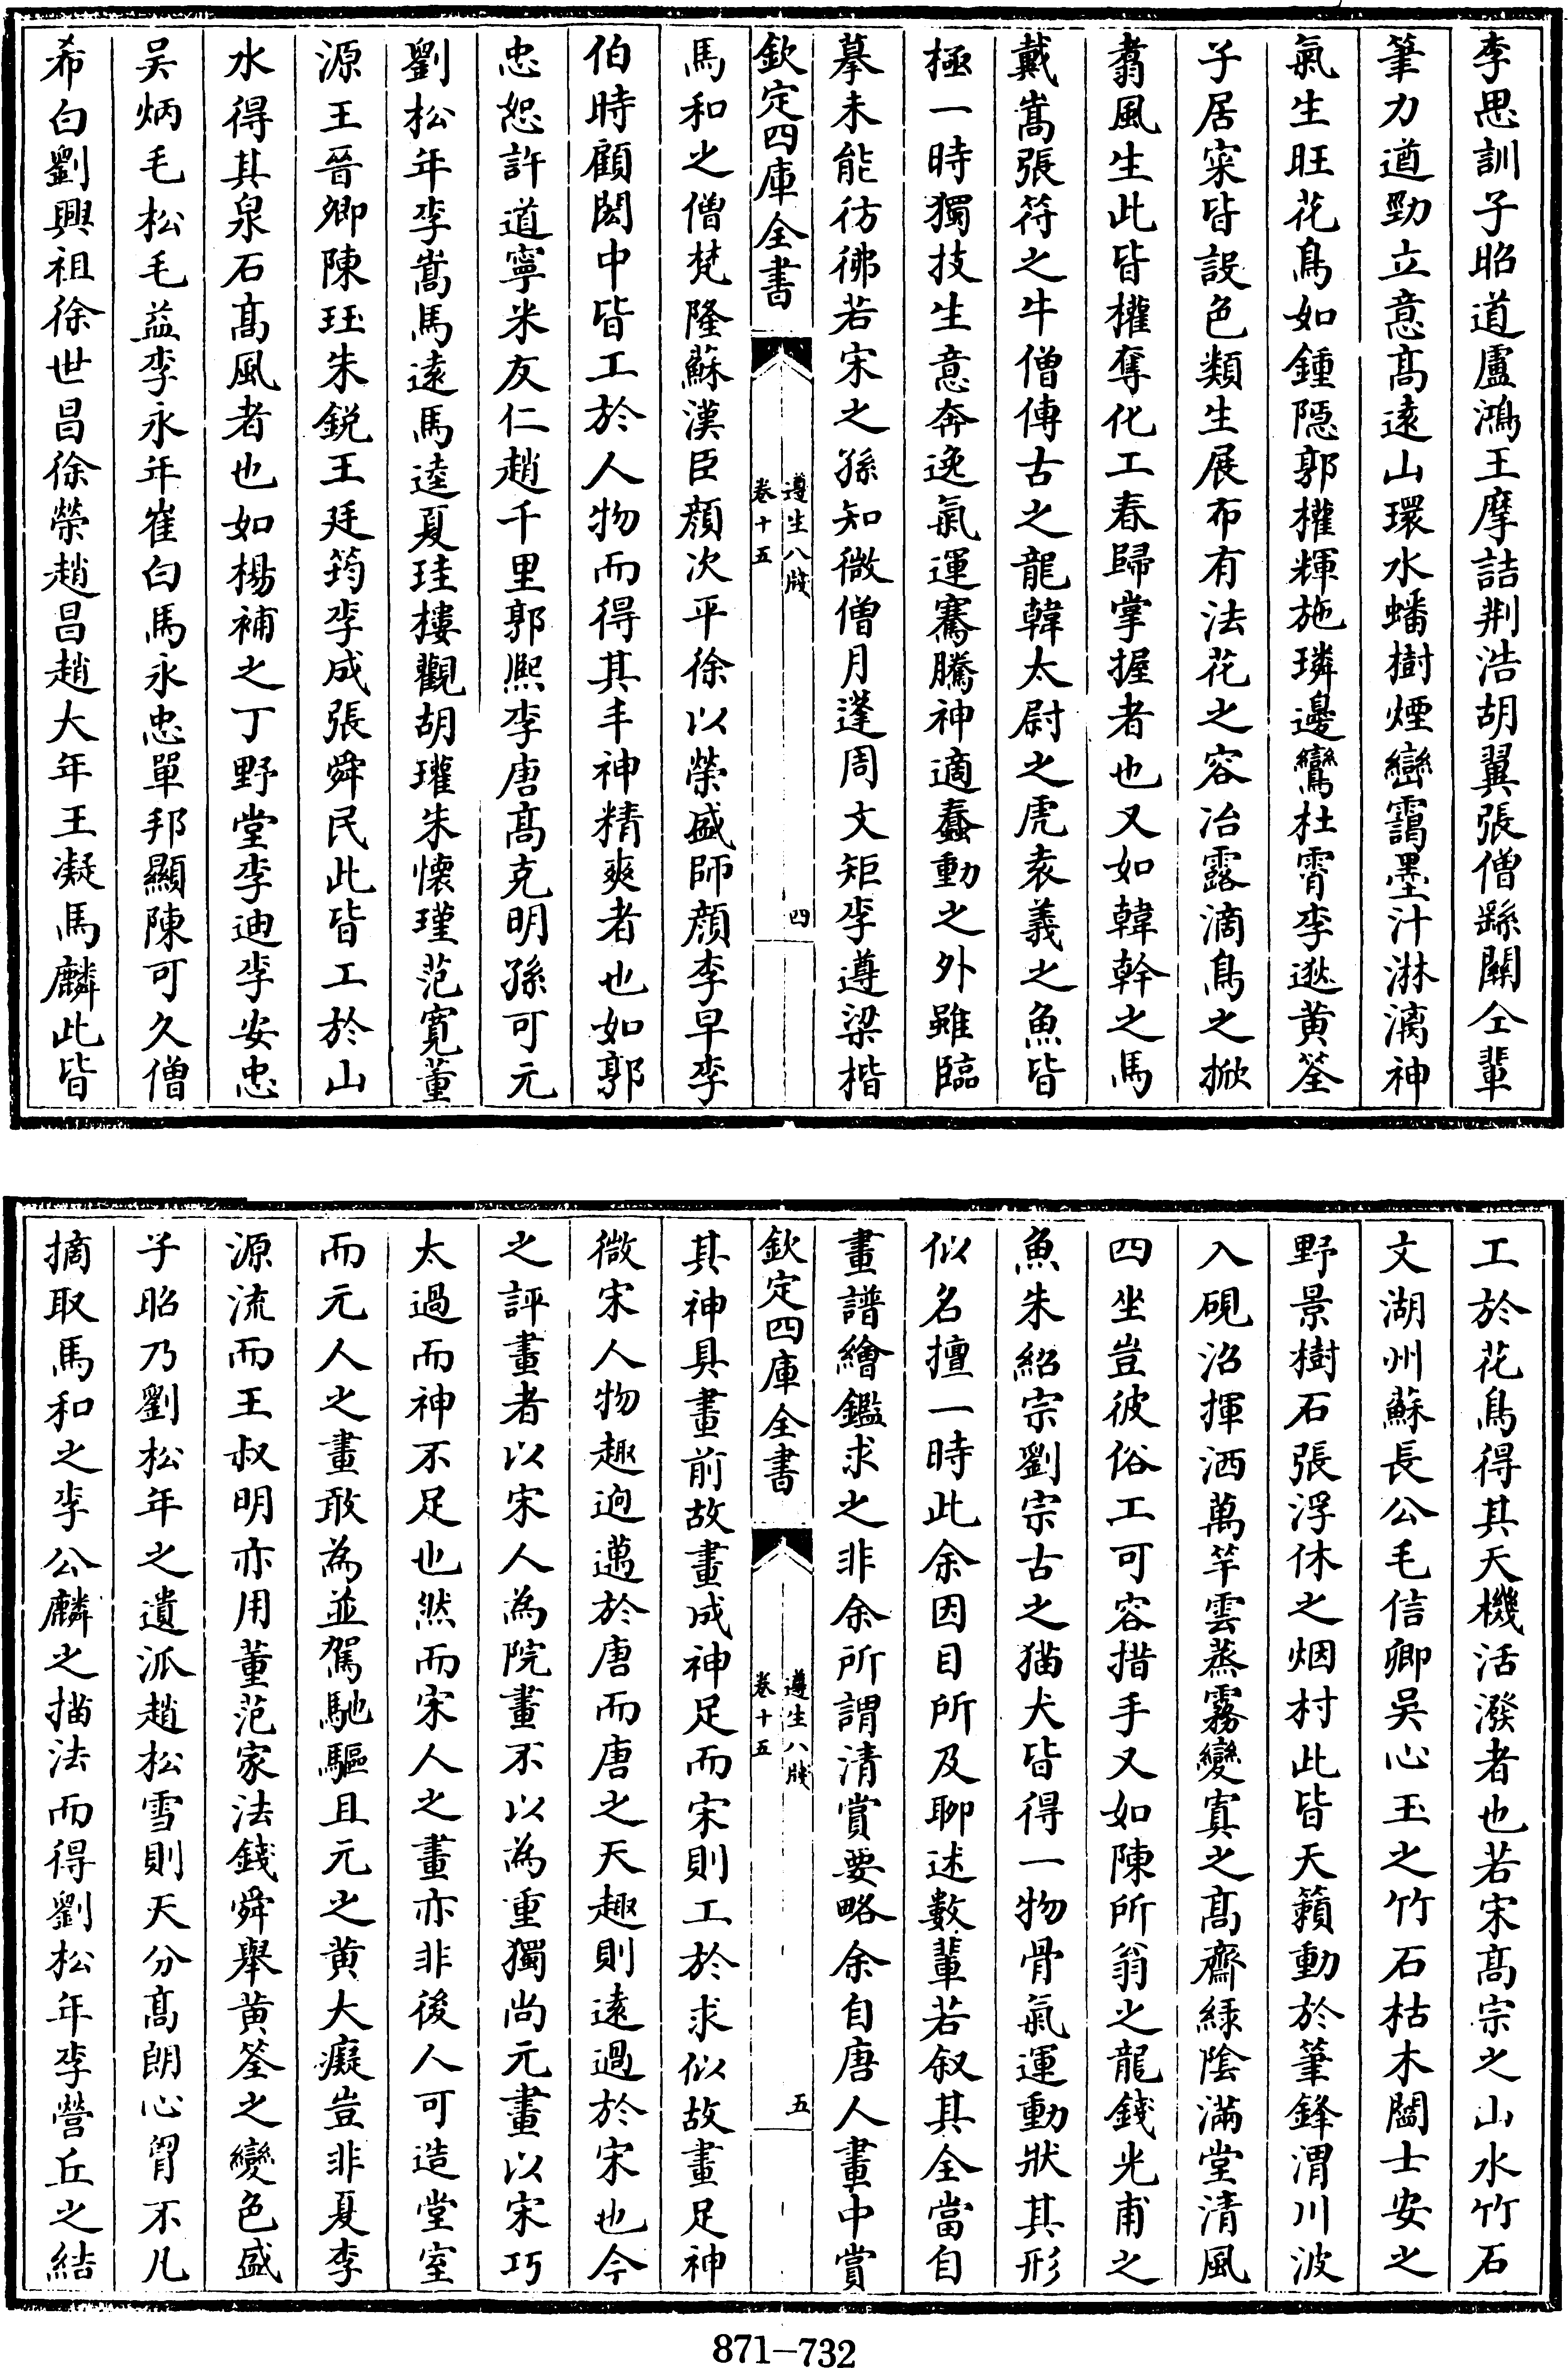 李思訓子昭道盧鴻王摩詰荆浩胡翼張僧繇關仝輩
筆力遒勁立意髙逺山環水蟠樹煙巒靄墨汁淋漓神
氣生旺花鳥如鍾隠郭權輝施璘邊鸞杜霄李逖黄筌
子居寀皆設色類生展布有法花之容冶露滴鳥之掀
翥風生此皆權奪化工春歸掌握者也又如韓幹之馬
戴嵩張符之牛僧傳古之龍韓太尉之虎袁義之魚皆
極一時獨技生意奔逸氣運騫騰神適蠢動之外雖臨
摹未能彷彿若宋之孫知微僧月蓬周文矩李遵梁楷
欽定四庫全書
遵生八牋
卷十五
四
馬和之僧梵隆蘇漢臣顔次平徐以榮盛師顔李早李
伯時顧閎中皆工於人物而得其丰神精爽者也如郭
忠恕許道寧米友仁趙千里郭熙李唐髙克明孫可元
劉松年李嵩馬逺馬逵夏珪樓觀胡瓘朱懷瑾范寛董
源王晉卿陳珏朱鋭王廷筠李成張舜民此皆工於山
水得其泉石髙風者也如楊補之丁野堂李迪李安忠
吴炳毛松毛益李永年崔白馬永忠單邦顯陳可久僧
希白劉興祖徐世昌徐榮趙昌趙大年王凝馬麟此皆
工於花鳥得其天機活潑者也若宋髙宗之山水竹石
文湖州蘇長公毛信卿吴心玉之竹石枯木閻士安之
野景樹石張浮休之烟村此皆天籟動於筆鋒渭川波
入硯沼揮洒萬竿雲蒸霧變寘之髙齋緑陰滿堂清風
四坐豈彼俗工可容措手又如陳所翁之龍錢光甫之
魚朱紹宗劉宗古之猫犬皆得一物骨氣運動狀其形
似名擅一時此余因目所及聊述數輩若叙其全當自
畫譜繪鑑求之非余所謂清賞要略余自唐人畫中賞
欽定四庫全書
遵生八牋
卷十五
五
其神具畫前故畫成神足而宋則工於求似故畫足神
微宋人物趣逈邁於唐而唐之天趣則逺過於宋也今
之評畫者以宋人為院畫不以為重獨尚元畫以宋巧
太過而神不足也然而宋人之畫亦非後人可造堂室
而元人之畫敢為並駕馳驅且元之黄大癡豈非夏李
源流而王叔明亦用董范家法錢舜舉黄筌之變色盛
子昭乃劉松年之遺派趙松雪則天分髙朗心胷不凡
摘取馬和之李公麟之描法而得劉松年李營丘之結
871—732